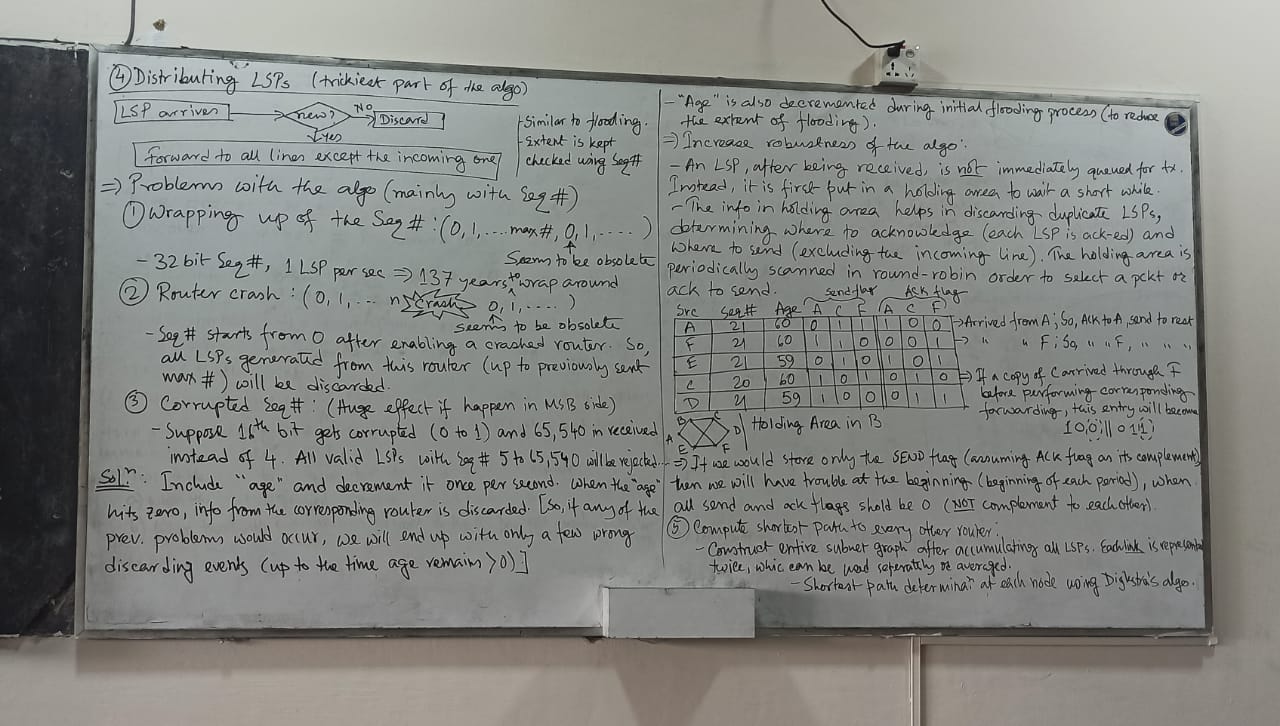 ④ Distributing LSPs (trickiest part of the algo)
LSP arrives → new? No → Discard
Yes
forward to all lines except the incoming one
- Similar to flooding.
- Extent is kept
checked using Seq#
⇒ Problems with the algo (mainly with Seq #)
① Wrapping up of the Seq # : (0, 1, .... max #, 0, 1, .... )
Seems to be obsolete
- 32 bit Seq #, 1 LSP per sec ⇒ 137 years to wrap around
② Router crash : (0, 1, ... n Crash 0, 1, .... )
seems to be obsolete
- Seq # starts from 0 after enabling a crashed router. So,
all LSPs generated from this router (up to previously sent
max #) will be discarded.
③ Corrupted Seq # : (Huge effect if happen in MSB side)
- Suppose 16th bit gets corrupted (0 to 1) and 65,540 in received
instead of 4. All valid LSPs with Seq # 5 to 65,540 will be rejected.
Solⁿ: Include "age" and decrement it once per second. When the "age"
hits zero, info from the corresponding router is discarded. [So, if any of the
prev. problems would occur, we will end up with only a few wrong
discarding events (up to the time age remains >0)]
- "Age" is also decremented during initial flooding process (to reduce
the extent of flooding).
⇒ Increase robustness of the algo:
- An LSP, after being received, is not immediately queued for tx.
Instead, it is first put in a holding area to wait a short while.
- The info in holding area helps in discarding duplicate LSPs,
determining where to acknowledge (each LSP is ack-ed) and
where to send (excluding the incoming line). The holding area is
periodically scanned in round-robin order to select a pckt or
ack to send.
Send flag Ack flag
Src Seq# Age A C F A C F
A 21 60 0 1 1 1 0 0 → Arrived from A; So, Ack to A, send to rest
F 21 60 1 1 0 0 0 1 → " " F; So, " " F, " " "
E 21 59 0 1 0 1 0 1
C 20 60 1 0 1 0 1 0 ⇒ If a copy of C arrived through F
D 21 59 1 0 0 0 1 1
before performing corresponding
forwarding, this entry will become
100 || 011
B C
A D
E F
Holding Area in B
⇒ If we would store only the SEND flag (assuming ACK flag as its complement)
then we will have trouble at the beginning (beginning of each period), when
all send and ack flags shold be 0 (NOT complement to each other).
⑤ Compute shortest path to every other router:
- Construct entire subnet graph after accumulating all LSPs. Each link is represented
twice, whic can be used seperatly or averaged.
- Shortest path determinaⁿ at each node using Dijkstra's algo.